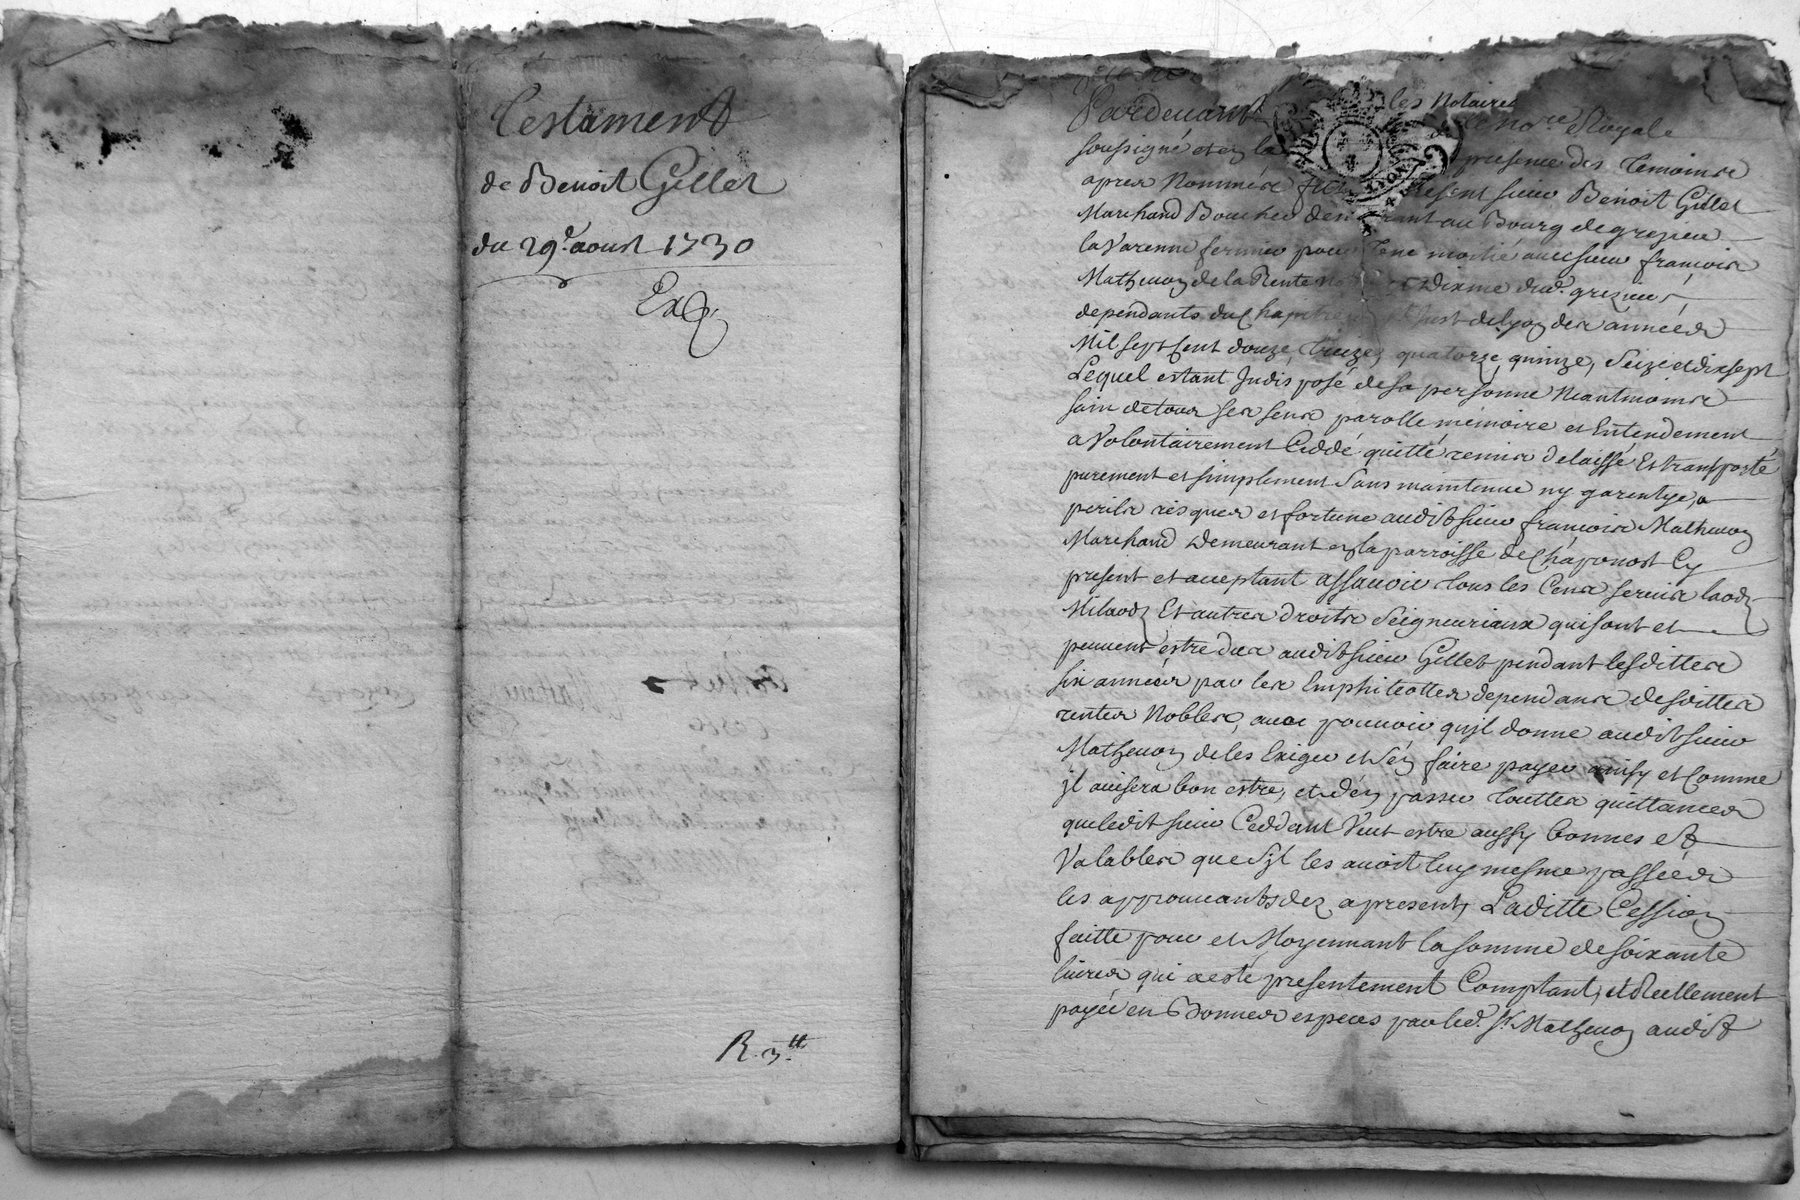 Testament
de Benoit Gillet
du 29e. aoust 1730
Exp
R. 3tt
les Notaires
Pardevant le nore. Royale
soussigné et en la presence des temoins
apres Nommés fut present sieur Benoit Gillet
Marchand Boucher demeurant au Bourg de grezieu
la Varenne fermier pour une moitié avec sieur françois
Mathevon de la Rente et Dixme dud. grezieu,
dependants du Chapitre de St Just de Lyon des années
Mil sept Cent douze, treize, quatorze, quinze, Seize et dix sept
Lequel estant Indisposé de sa personne Neantmoins
sain de tous ses sens parolle mémoire et Entendement
a Volontairement Ceddé quitté remis delaissé Et transporté
purement et simplement Sans maintenue ny garentye, a
perils risques et fortune audit sieur françois Mathevon
Marchand Demeurant en la parroisse de Chaponost Cy
present et acceptant assavoir tous les Cens servis laodz
Milaodz Et autres droits Seigneuriaux qui sont et
peuvent estre dus audit sieur Gillet pendant lesdittes
six années par les Emphiteottes dependans desdittes
rentes Nobles, avec pouvoir qu'jl donne audit sieur
Mathevon de les Exiger et s'en faire payer ainsy et Comme
jl avisera bon estre, et d'en passer touttes quittances
que ledit sieur Ceddant Veut estre aussy bonnes et
Valables que s'jl les avoit luy mesme passées
les approuvants dez a present, Laditte Cession
faitte pour et Moyennant la somme de soixante
livres qui a esté presentement Comptant, et Reellement
payée en Bonnes especes par led. sr. Mathevon audit